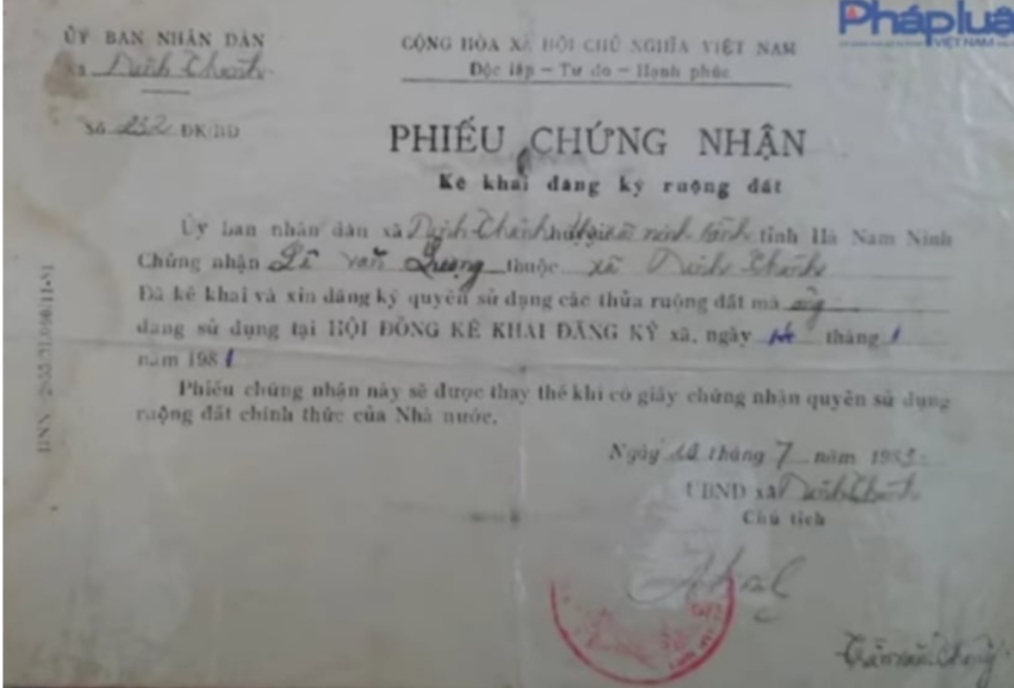 Pháp luậ
VIỆT NAM
ỦY BAN NHÂN DÂN
xã Ninh Thành
CỘNG HÒA XÃ HỘI CHỦ NGHĨA VIỆT NAM
Độc lập – Tự do – Hạnh phúc
Số 232 ĐK/RĐ
PHIẾU CHỨNG NHẬN
Kê khai đăng ký ruộng đất
Ủy ban nhân dân xã Ninh Thành tỉnh Hà Nam Ninh
Chứng nhận Lê văn thuộc xã Ninh Thành
Đã kê khai và xin đăng ký quyền sử dụng các thửa ruộng đất mà ông
đang sử dụng tại HỘI ĐỒNG KÊ KHAI ĐĂNG KÝ xã, ngày tháng 1
năm 1981
Phiếu chứng nhận này sẽ được thay thế khi có giấy chứng nhận quyền sử dụng
ruộng đất chính thức của Nhà nước.
Ngày tháng 7 năm 198
UBND xã Ninh Thành
Chủ tịch